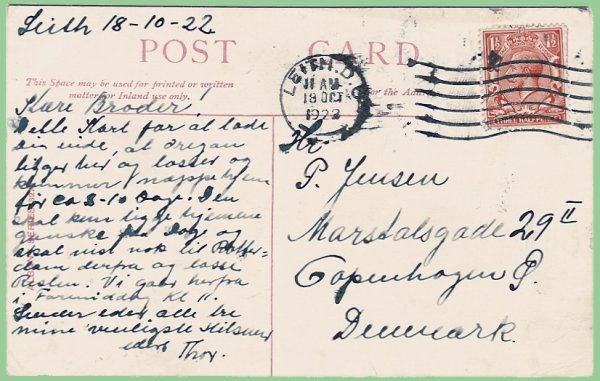 Leith 18-10-22
POST CARD
This Space may be used for printed or written
matter for Inland use only.
for the
LEITH.D.O
11 AM
18 OCT
1922
THREE HALF PENCE
Kære Broder!
Dette Kort for at lade
dig vide, at
ligger her og losser og
kommer næppe hjem
før ca 8-10 Dage. Den
skal kun ligge hjemme
ganske faa Dage og
skal vist nok til Rotter-
dam derfra og losse
Resten. Vi gaar herfra
i Formiddag Kl 11.
Sender eder alle tre
mine venligste Hilsener
eders Thor.
Hr.
P. Jensen
Marstalsgade 29 II
Copenhagen Ø.
Denmark.